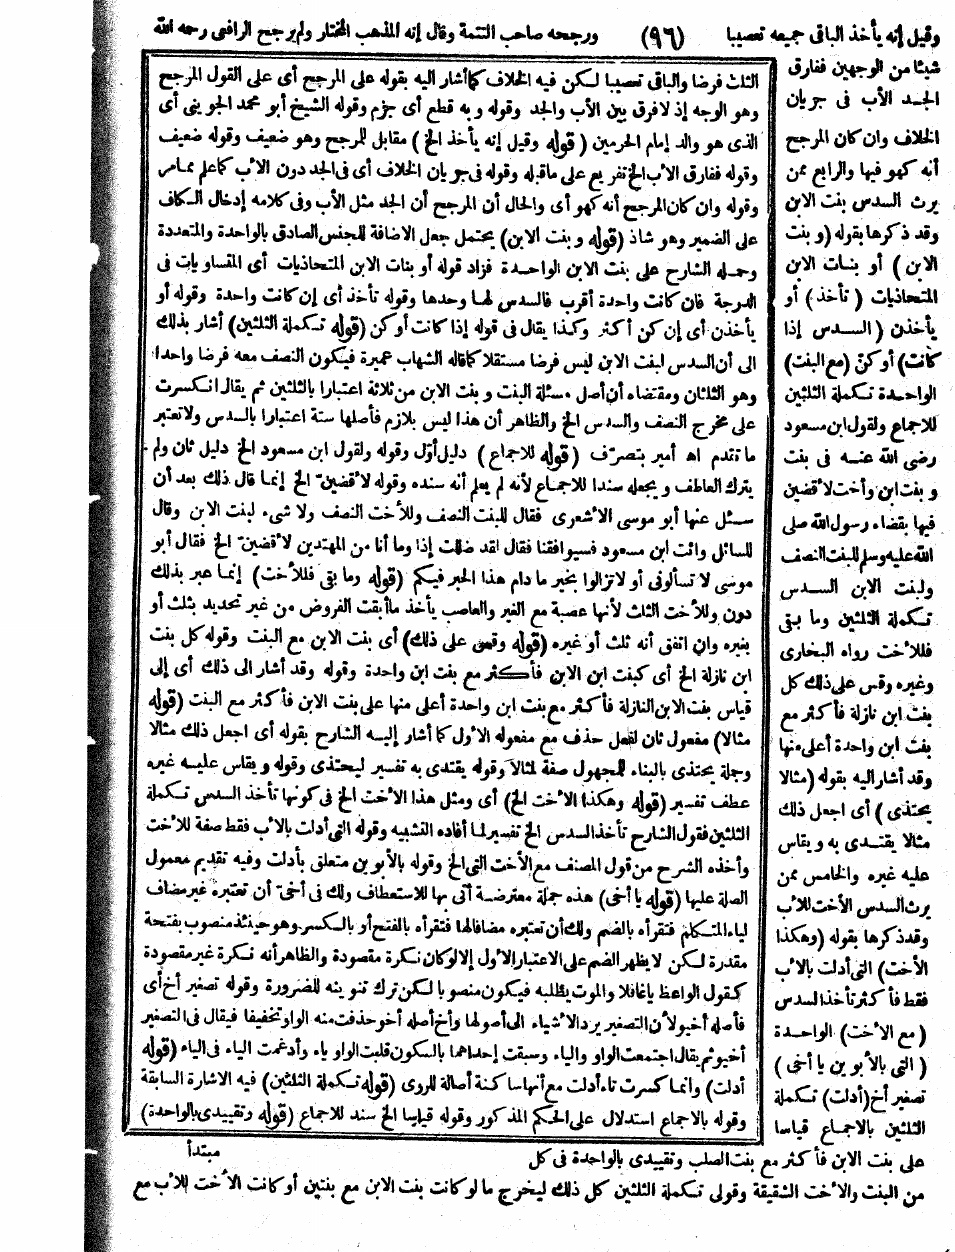 وقيل إنه يأخذ الباقى جميعه تعصيبا (٩٦) ورجحه صاحب التتمة وقال إنه المذهب المختار ولم يرجح الرافعى رحمه الله
شيئا من الوجهين ففارق
الجد الأب فى جريان
الخلاف وان كان المرجح
أنه كهو فيها والرابع ممن
يرث السدس بنت الابن
وقد ذكرها بقوله (وبنت
الابن) أو بنات الابن
المتحاذيات (تأخذ) أو
يأخذن (السدس إذا
كانت) أو كنّ (مع البنت)
الواحدة تكملة الثلثين
للاجماع ولقول ابن مسعود
رضى الله عنه فى بنت
وبنت ابن وأخت لأقضين
فيها بقضاء رسول الله صلى
الله عليه وسلم للبنت النصف
ولبنت الابن السدس
تكملة الثلثين وما بقى
فللأخت رواه البخارى
وغيره وقس على ذلك كل
بنت ابن نازلة فأكثر مع
بنت ابن واحدة أعلى منها
وقد أشار اليه بقوله (مثالا
يحتذى) أى اجعل ذلك
مثالا يقتدى به ويقاس
عليه غيره والخامس ممن
يرث السدس الأخت للأب
وقد ذكرها بقوله (وهكذا
الأخت) التى أدلت بالأب
فقط فأكثر تأخذ السدس
(مع الأخت) الواحدة
(التى بالأبوين يا أخى)
تصغير أخ (أدلت) تكملة
الثلثين بالاجماع قياسا
على بنت الابن فأكثر مع بنت الصلب وتقييدى بالواحدة فى كل
من البنت والأخت الشقيقة وقولى تكملة الثلثين كل ذلك ليخرج ما لو كانت بنت الابن مع بنتين أو كانت الأخت للأب مع
الثلث فرضا والباقى تعصيبا لكن فيه الخلاف كما أشار اليه بقوله على المرجح أى على القول المرجح
وهو الوجه إذ لا فرق بين الأب والجد وقوله وبه قطع أى جزم وقوله الشيخ أبو محمد الجوينى أى
الذى هو والد إمام الحرمين (قوله وقيل إنه يأخذ الخ) مقابل للمرجح وهو ضعيف وقوله ضعيف
وقوله ففارق الأب الخ تفريع على ما قبله وقوله فى جريان الخلاف أى فى الجد دون الأب كما علم مما مر
وقوله وان كان المرجح أنه كهو أى والحال أن المرجح أن الجد مثل الأب وفى كلامه إدخال الكاف
على الضمير وهو شاذ (قوله وبنت الابن) يحتمل جعل الاضافة للجنس الصادق بالواحدة والمتعددة
وحمله الشارح على بنت الابن الواحدة فزاد قوله أو بنات الابن المتحاذيات أى المتساويات فى
الدرجة فان كانت واحدة أقرب فالسدس لها وحدها وقوله تأخذ أى إن كانت واحدة وقوله أو
يأخذن أى إن كن أكثر وكذا يقال فى قوله إذا كانت أو كن (قوله تكملة الثلثين) أشار بذلك
الى أن السدس لبنت الابن ليس فرضا مستقلا كما قاله الشهاب عميرة فيكون النصف معه فرضا واحدا
وهو الثلثان ومقتضاه أن أصل مسئلة البنت وبنت الابن من ثلاثة اعتبارا بالثلثين ثم يقال انكسرت
على مخرج النصف والسدس الخ والظاهر أن هذا ليس بلازم فأصلها ستة اعتبارا بالسدس ولا تعتبر
ما تقدم اه أمير بتصرّف (قوله للاجماع) دليل أوّل وقوله ولقول ابن مسعود الخ دليل ثان ولم
يترك العاطف ويجعله سندا للاجماع لأنه لم يعلم أنه سنده وقوله لأقضينّ الخ إنما قال ذلك بعد أن
سئل عنها أبو موسى الأشعرى فقال للبنت النصف وللأخت النصف ولا شىء لبنت الابن وقال
للسائل وائت ابن مسعود فسيوافقنا فقال لقد ضللت إذا وما أنا من المهتدين لأقضينّ الخ فقال أبو
موسى لا تسألونى أو لا تزالوا بخير ما دام هذا الحبر فيكم (قوله وما بقى فللأخت) إنما عبر بذلك
دون وللأخت الثلث لأنها عصبة مع الغير والعاصب يأخذ ما أبقت الفروض من غير تحديد بثلث أو
بغيره وان اتفق أنه ثلث أو غيره (قوله وقس على ذلك) أى بنت الابن مع البنت وقوله كل بنت
ابن نازلة الخ أى كبنت ابن الابن فأكثر مع بنت ابن واحدة وقوله وقد أشار الى ذلك أى إلى
قياس بنت الابن النازلة فأكثر مع بنت ابن واحدة أعلى منها على بنت الابن فأكثر مع البنت (قوله
مثالا) مفعول ثان لفعل حذف مع مفعوله الأول كما أشار إليه الشارح بقوله أى اجعل ذلك مثالا
وجملة يحتذى بالبناء للمجهول صفة لمثالا وقوله يقتدى به تفسير ليحتذى وقوله ويقاس عليه غيره
عطف تفسير (قوله وهكذا الأخت الخ) أى ومثل هذا الأخت الخ فى كونها تأخذ السدس تكملة
الثلثين فقول الشارح تأخذ السدس الخ تفسير لما أفاده التشبيه وقوله التى أدلت بالأب فقط صفة للأخت
وأخذه الشرح من قول المصنف مع الأخت التى الخ وقوله بالأبوين متعلق بأدلت وفيه تقديم معمول
الصلة عليها (قوله يا أخى) هذه جملة معترضة أتى بها للاستعطاف ولك فى أخىّ أن تعتبره غير مضاف
لياء المتكلم فتقرأه بالضم ولك أن تعتبره مضافا لها فتقرأه بالفتح أو بالكسر وهو حينئذ منصوب بفتحة
مقدرة لكن لا يظهر الضم على الاعتبار الأول إلا لو كان نكرة مقصودة والظاهر أنه نكرة غير مقصودة
كقول الواعظ يا غافلا والموت يطلبه فيكون منصوبا لكن ترك تنوينه للضرورة وقوله تصغير أخ أى
فأصله أخيو لأن التصغير يرد الأشياء الى أصولها وأخ أصله أخو حذفت منه الواو تخفيفا فيقال فى التصغير
أخيو ثم يقال اجتمعت الواو والياء وسبقت إحداهما بالسكون قلبت الواو ياء وأدغمت الياء فى الياء (قوله
أدلت) وانما كسرت تاء أدلت مع أنها ساكنة أصالة للروى (قوله تكملة الثلثين) فيه الاشارة السابقة
وقوله بالاجماع استدلال على الحكم المذكور وقوله قياسا الخ سند للاجماع (قوله وتقييدى بالواحدة)
مبتدأ